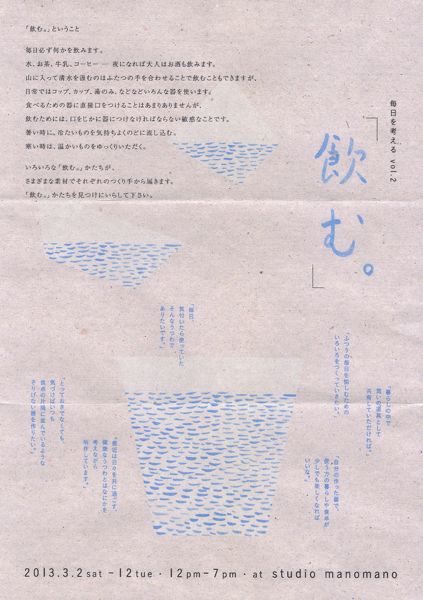 「飲む。」ということ
毎日必ず何かを飲みます。
水、お茶、牛乳、コーヒー ― 夜になれば大人はお酒も飲みます。
山に入って清水を温むのはふたつの手を合わせることで飲むこともできますが、
日常ではコップ、カップ、湯のみ、などなどいろんな器を使います。
食べるための器に直接口をつけることはあまりありませんが、
飲むためには、口をじかに器につけなければならない敏感なことです。
暑い時に、冷たいものを気持ちよくのどに流し込む。
寒い時は、温かいものをゆっくりいただく。
いろいろな「飲む。」かたちが、
さまざまな素材でそれぞれのつくり手から届きます。
「飲む。」かたちを見つけにいらして下さい。
毎日を考える vol.2
「飲む。」
「毎日、
気付いたら使っていた
そんなうつわで
ありたいです。」
「ふつうの毎日を愉しむための
いろいろをつくっていきたい。」
「暮らしの中で
潤いの道具として
共有していただければ。」
「自分の作った器で、
使う方の暮らしや食卓が
少しでも楽しくなれば
いいな。」
「最近は日々を共に過ごす、
健康なうつわとはなにかを
考えながら
制作しています。」
「とっておきでなくても、
気づけばいつも
食卓の片隅に並んでいるような
さりげない器を作りたい。」
2013.3.2sat -12tue・12pm-7pm・at studio manomano